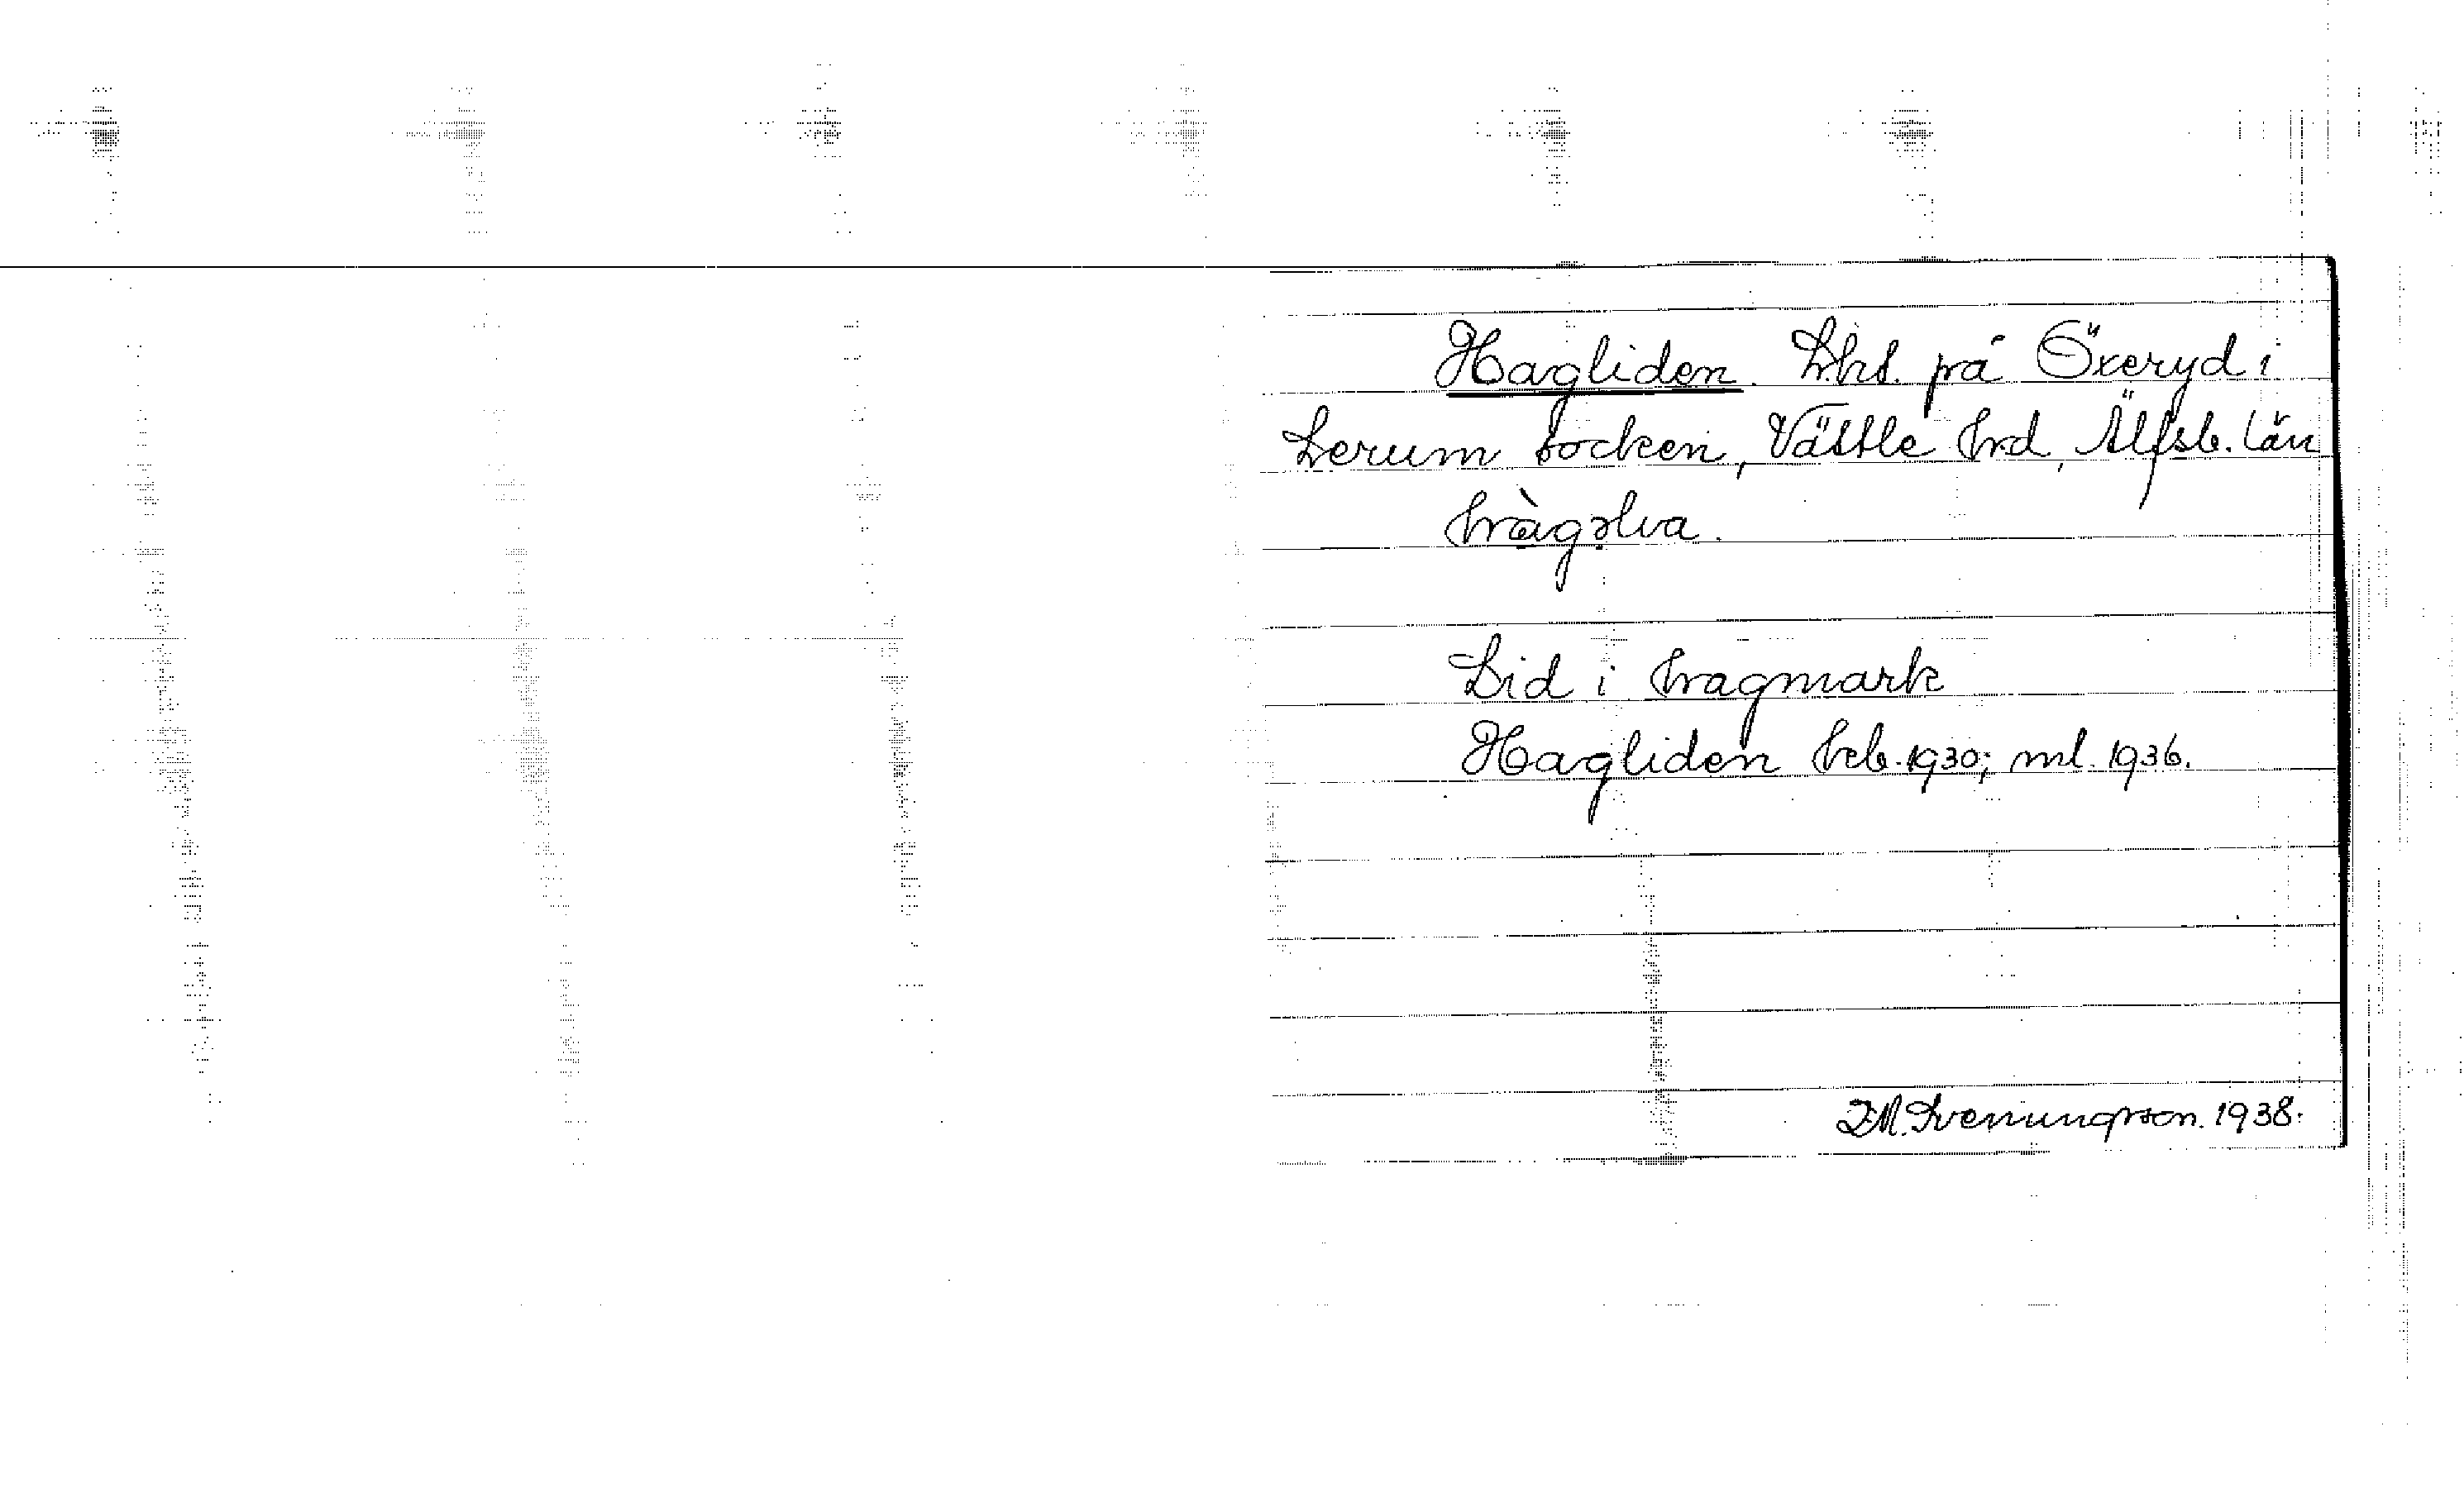 Hagliden. Lht. på Öxeryd i
Lerum socken, Vättle hd, Älfsb. län
hàgəlia.
Lid i hagmark
Hagliden heb. 1930; ml. 1936.
I.M. Svenungsson. 1938.